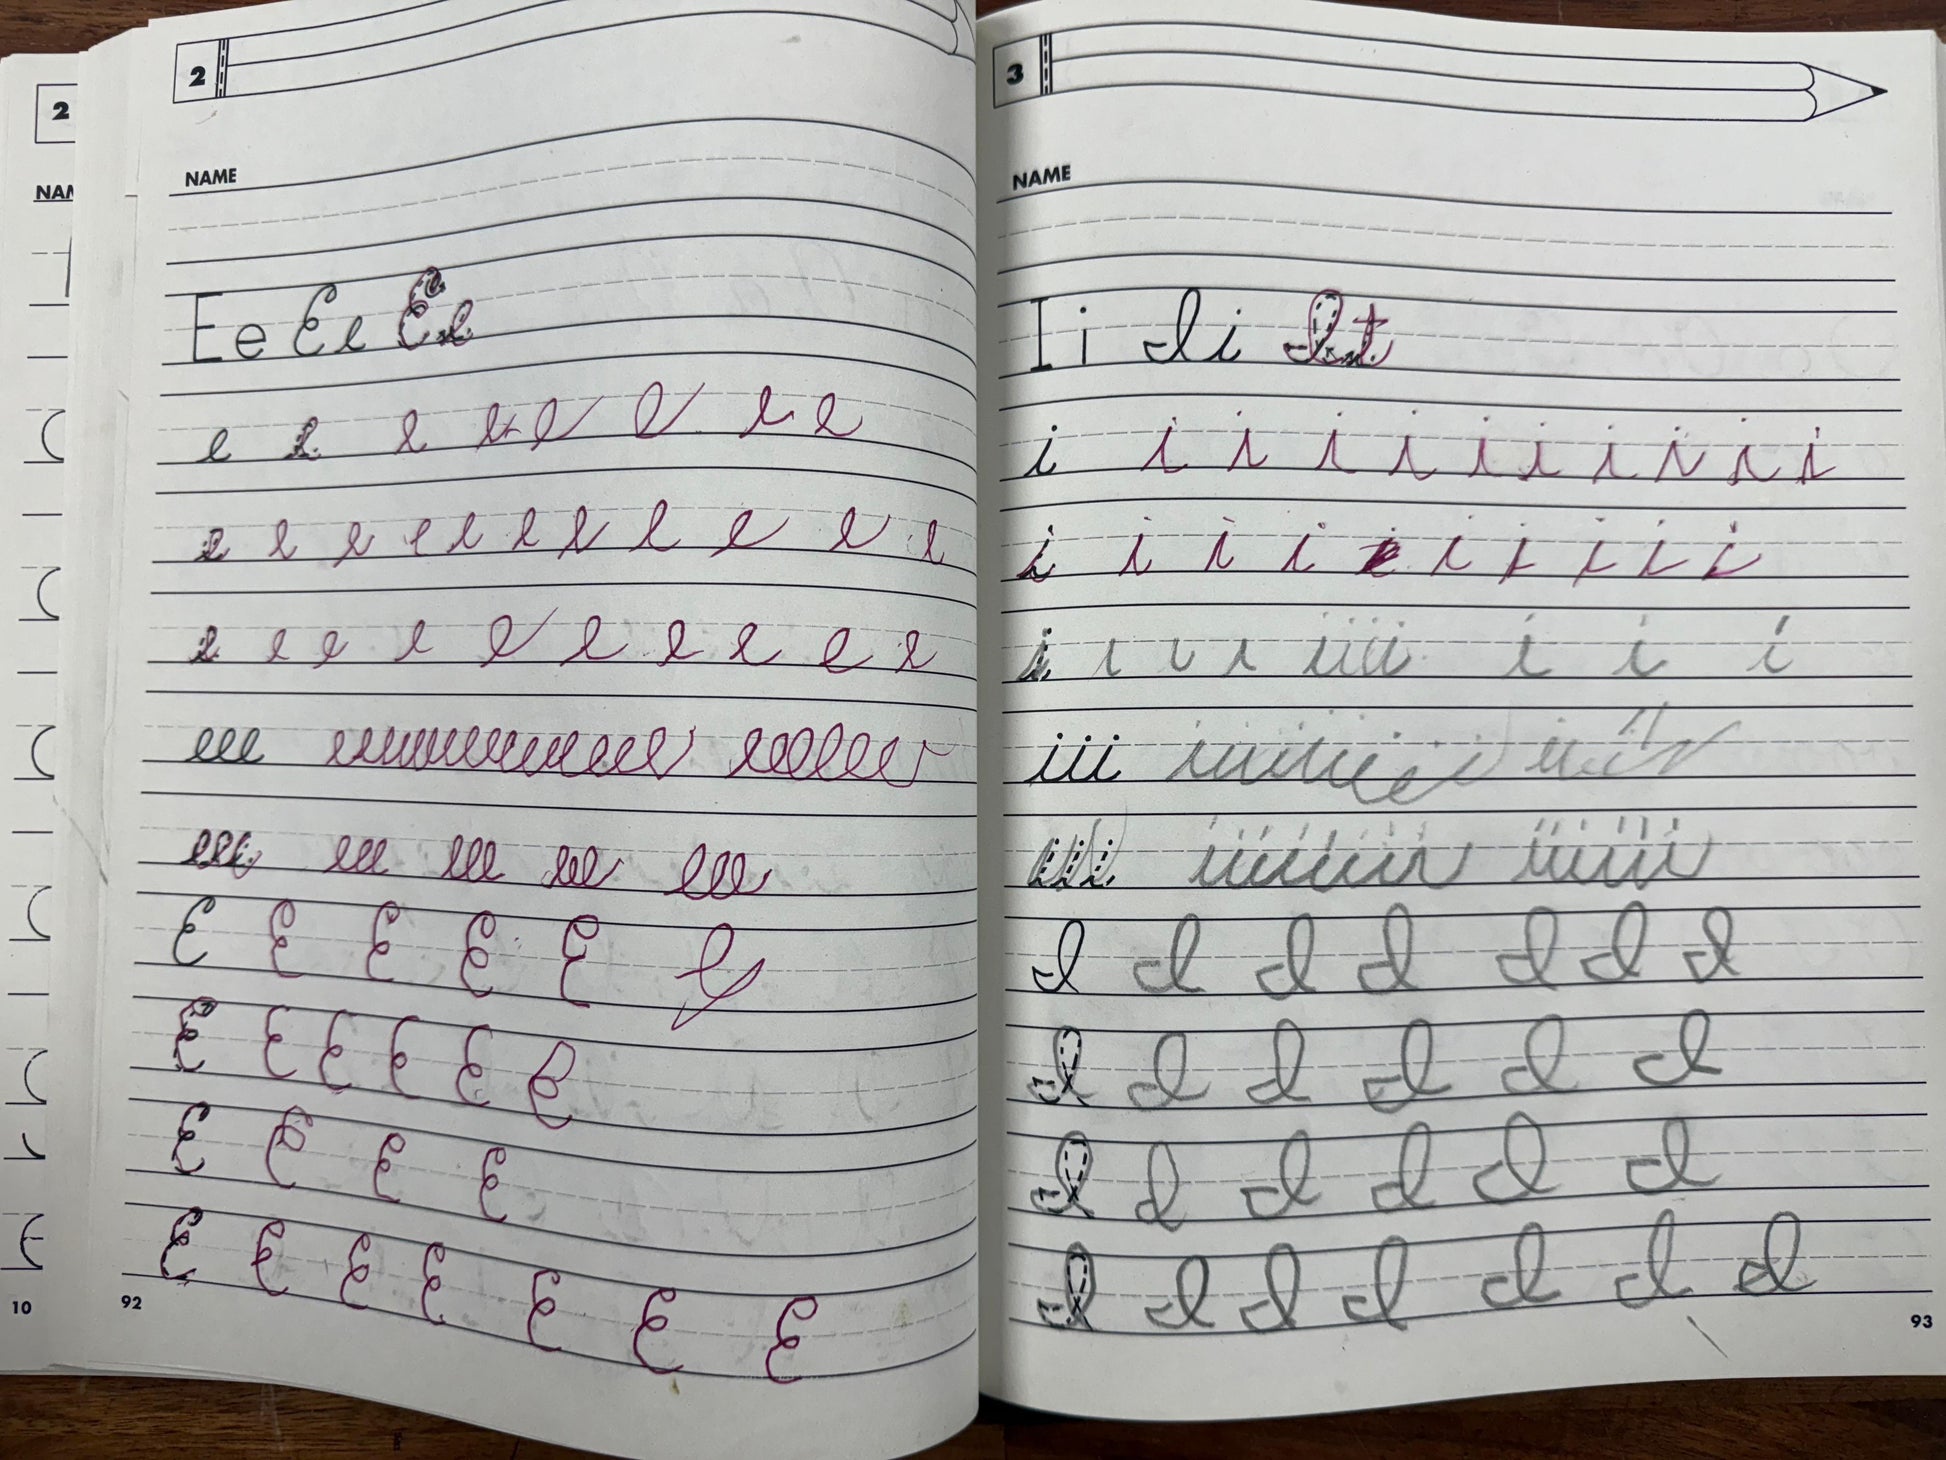 2
NAM
10
2
NAME
Ee Ee Ee
e e e e e e e e e
e e e e e e e e e e e
e e e e e e e e e e
eee eeeeeeeeeeeee eeeeeee
eee eee eee eee eee
E E E E E
E E E E E E
E E E E
E E E E E E E
92
3
NAME
I i I i I
i i i i i i i i i i i
i i i i i i i i i
i i i i iiii i i i
iii
iii
I I I I I I I
I I I I I I
I I I I I I
I I I I I I I
93